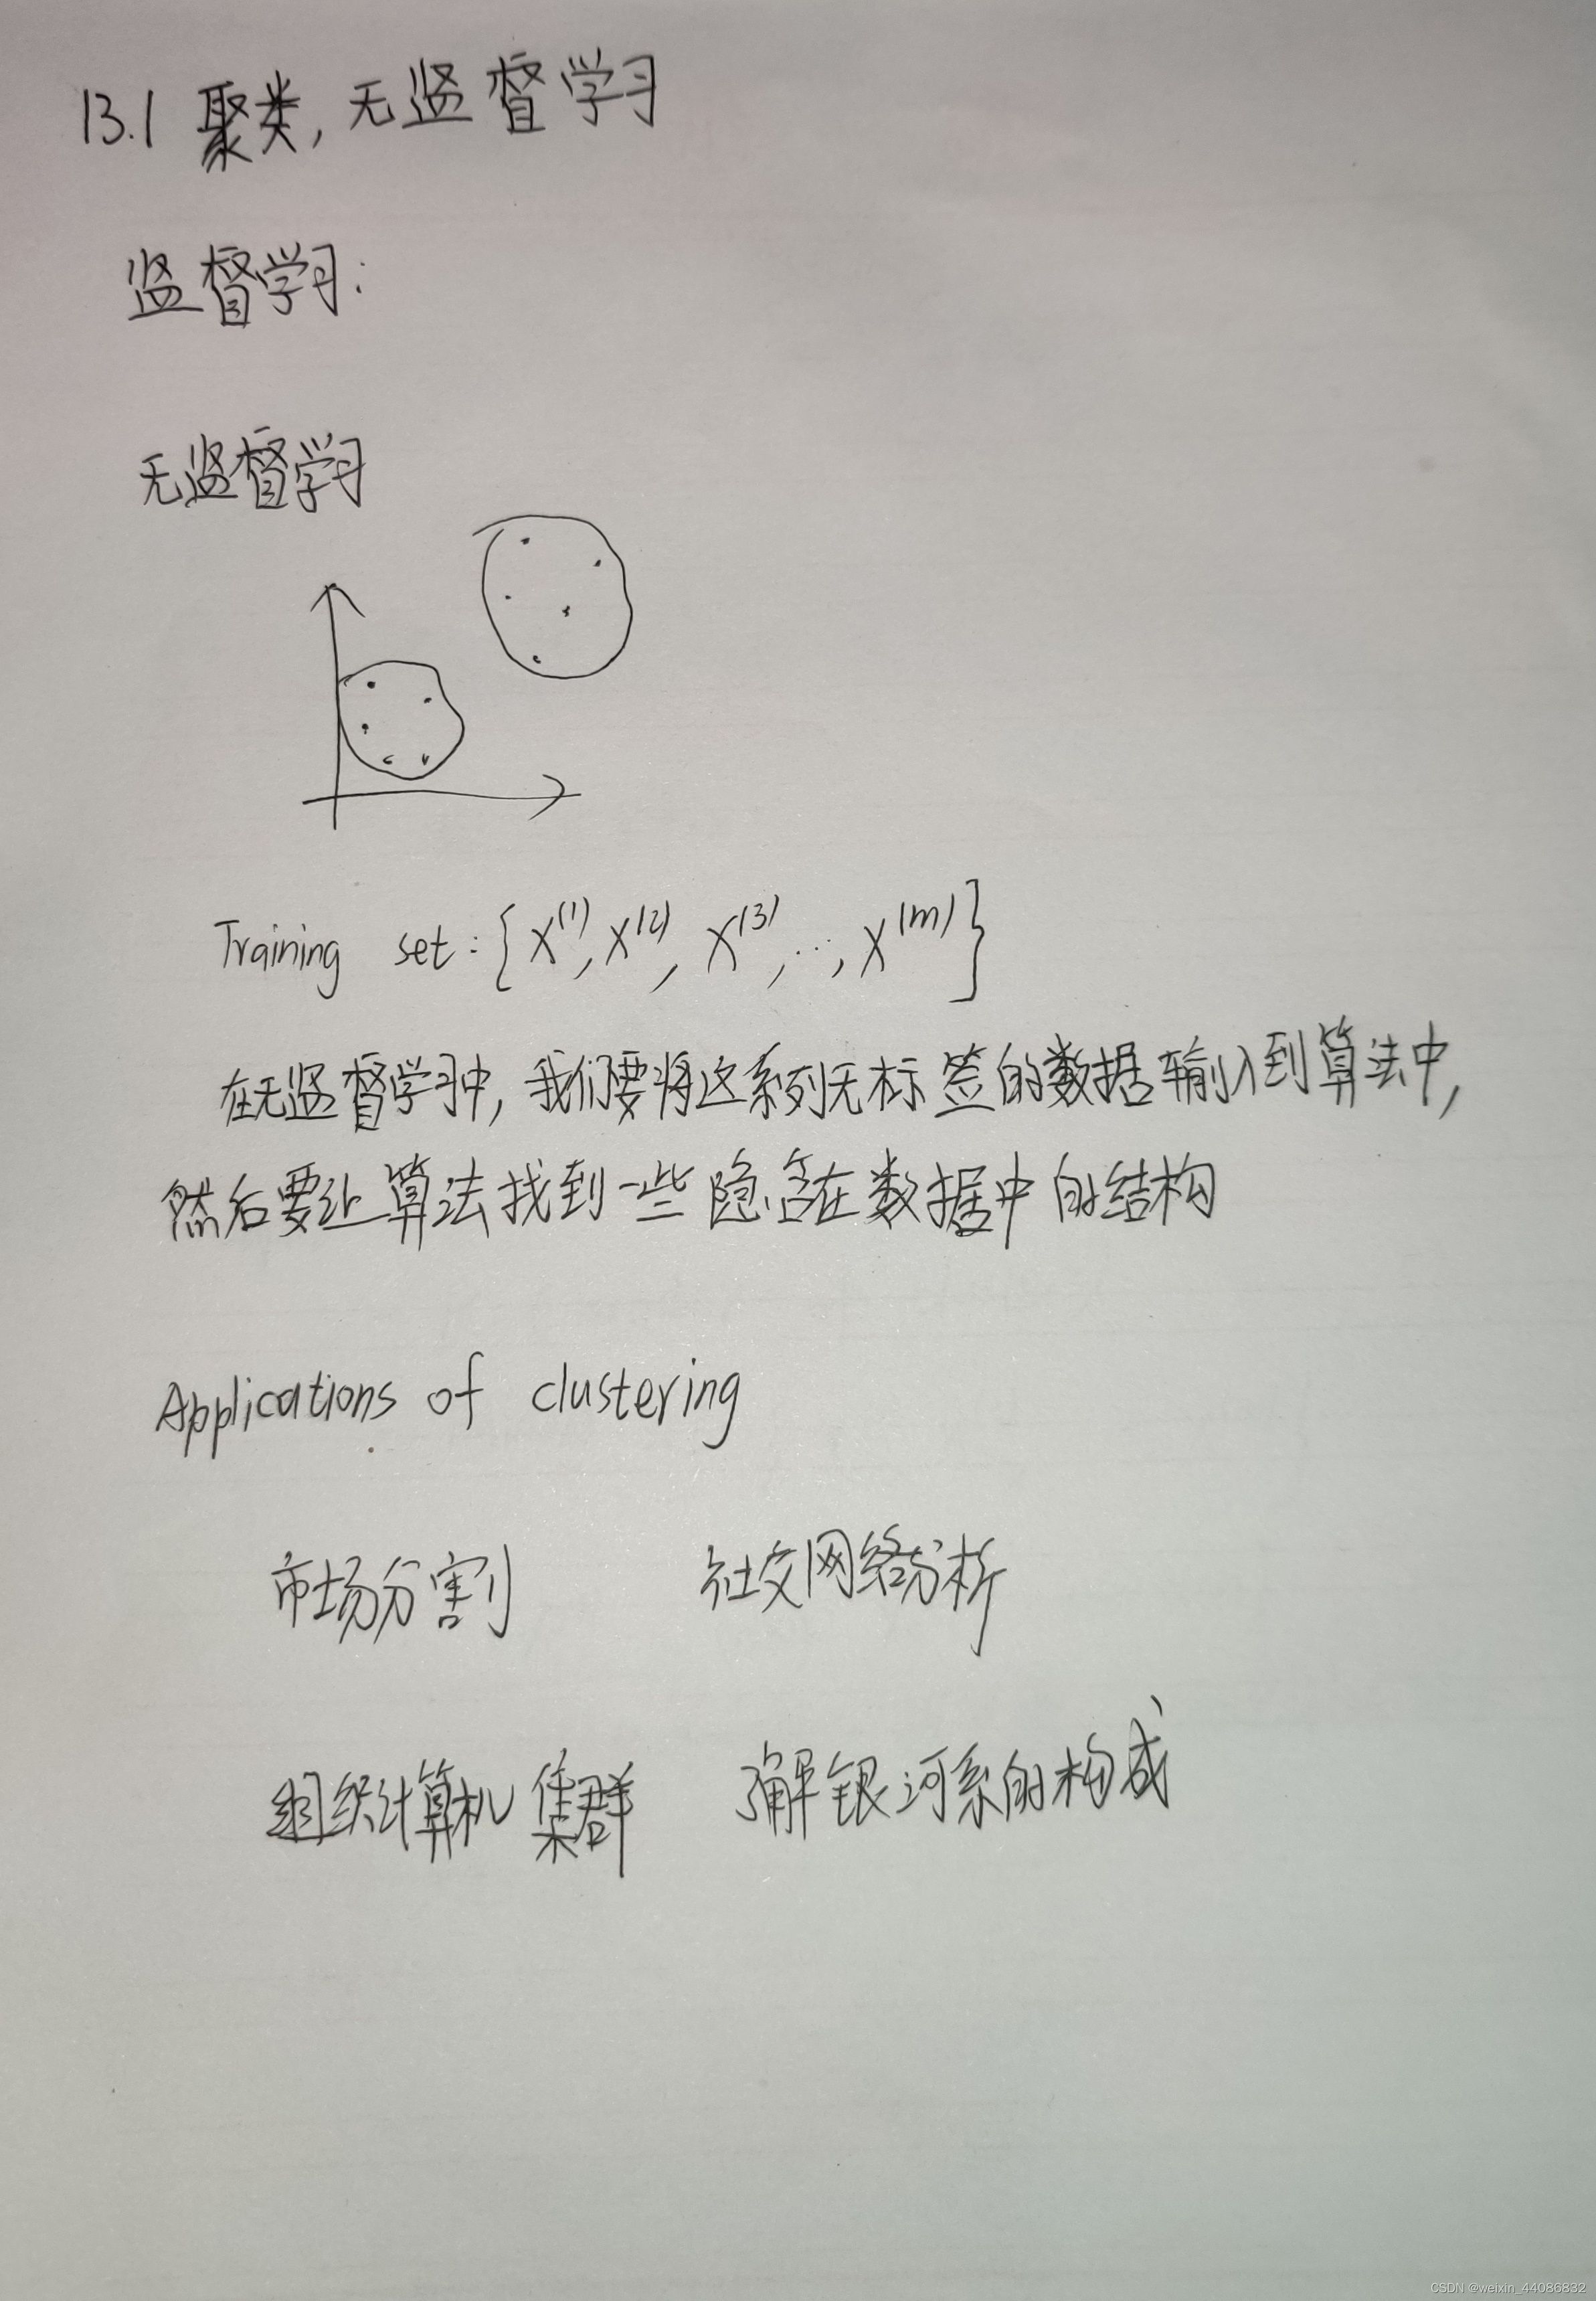 13.1 聚类, 无监督学习
监督学习:
无监督学习
Training set: {X^(1), X^(2), X^(3), ..., X^(m)}
在无监督学习中, 我们要将这系列无标签的数据输入到算法中,
然后要让算法找到一些隐含在数据中的结构
Applications of clustering
市场分割 社交网络分析
组织计算机集群 了解银河系的构成
CSDN @weixin_44086832